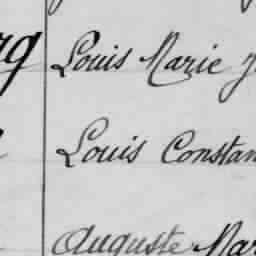 Louis Marie
Louis Constan
Auguste Mar